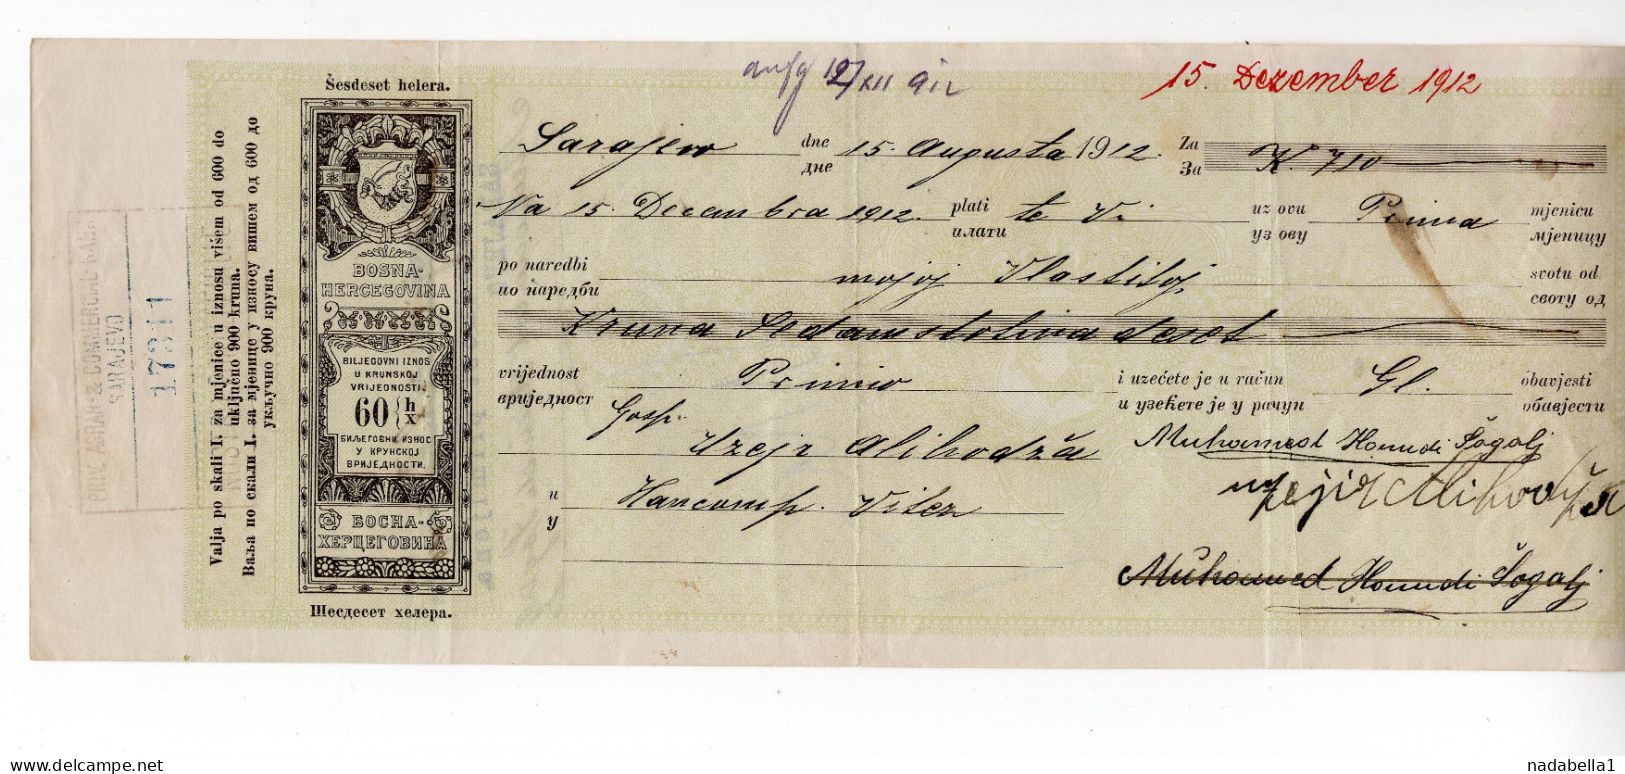 15. Dezember 1912
Šesdeset helera.
Sarajevo dne 15. Augusta 1912. Za K. 710
дне За
Na 15. Decembra 1912. plati te Vi uz ovu Prima mjenicu
плати уз ову мјеницу
po naredbi mojoj Vlastitoj svotu od
по наредби своту од
Kruna Sedamstotina deset
vrijednost Primio i uzećete je u račun Gl. obavjesti
вриједност и узећете је у рачун обавјести
Gosp.
Uzejr Alihodža
Muhamed Hamdi Šogolj
u
у
Hancomp. Vitez
Muhamed Hamdi Šogolj
BOSNA-
HERCEGOVINA
BILJEGOVNI IZNOS
U KRUNSKOJ
VRIJEDNOSTI.
60 h
х
БИЉЕГОВНИ ИЗНОС
У КРУНСКОЈ
ВРИЈЕДНОСТИ.
БОСНА-
ХЕРЦЕГОВИНА
Шесдесет хелера.
Valja po skali I. za mjenice u iznosu višem od 600 do
uključno 900 kruna.
Ваља по скали I. за мјенице у износу вишем од 600 до
укључно 900 круна.
PRIV. AGRAR & COMMERCIAL BANK
SARAJEVO
17311
www.delcampe.net
nadabella1